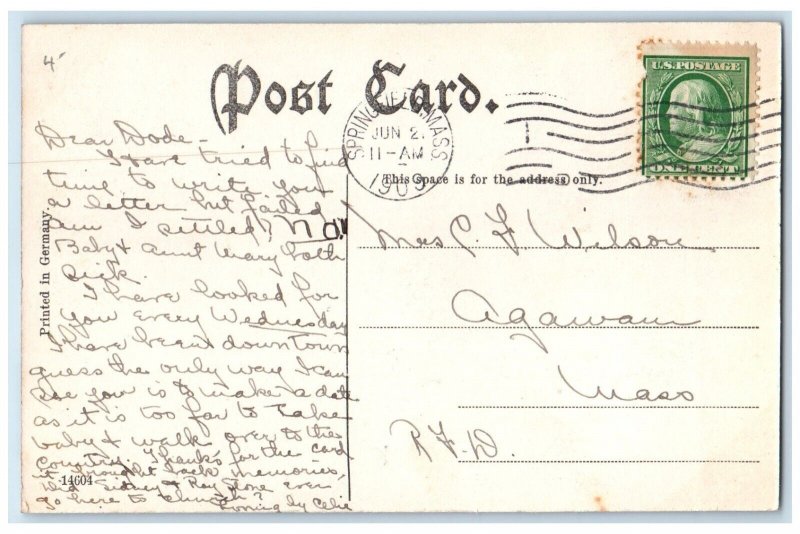 4
Post Card.
U.S. POSTAGE
ONE CENT
SPRINGFIELD, MASS
JUN 2
11-AM
1909
This Space is for the address only.
Printed in Germany.
Dear Dode -
I have tried to find
time to write you
a letter but failed
am I settled? No!
Baby & Aunt Mary both
sick.
I have looked for
you every Wednesday
I have been downtown
guess the only way I can
see you is to make a date
as it is too far to take
baby & walk over to the
country. Thanks for the card
it brought back memories,
Did Sidney & Ray Stone ever
go here to church?
Lovingly Celie
14604
Mrs C. F. Wilson
Agawam
Mass
R.F.D.